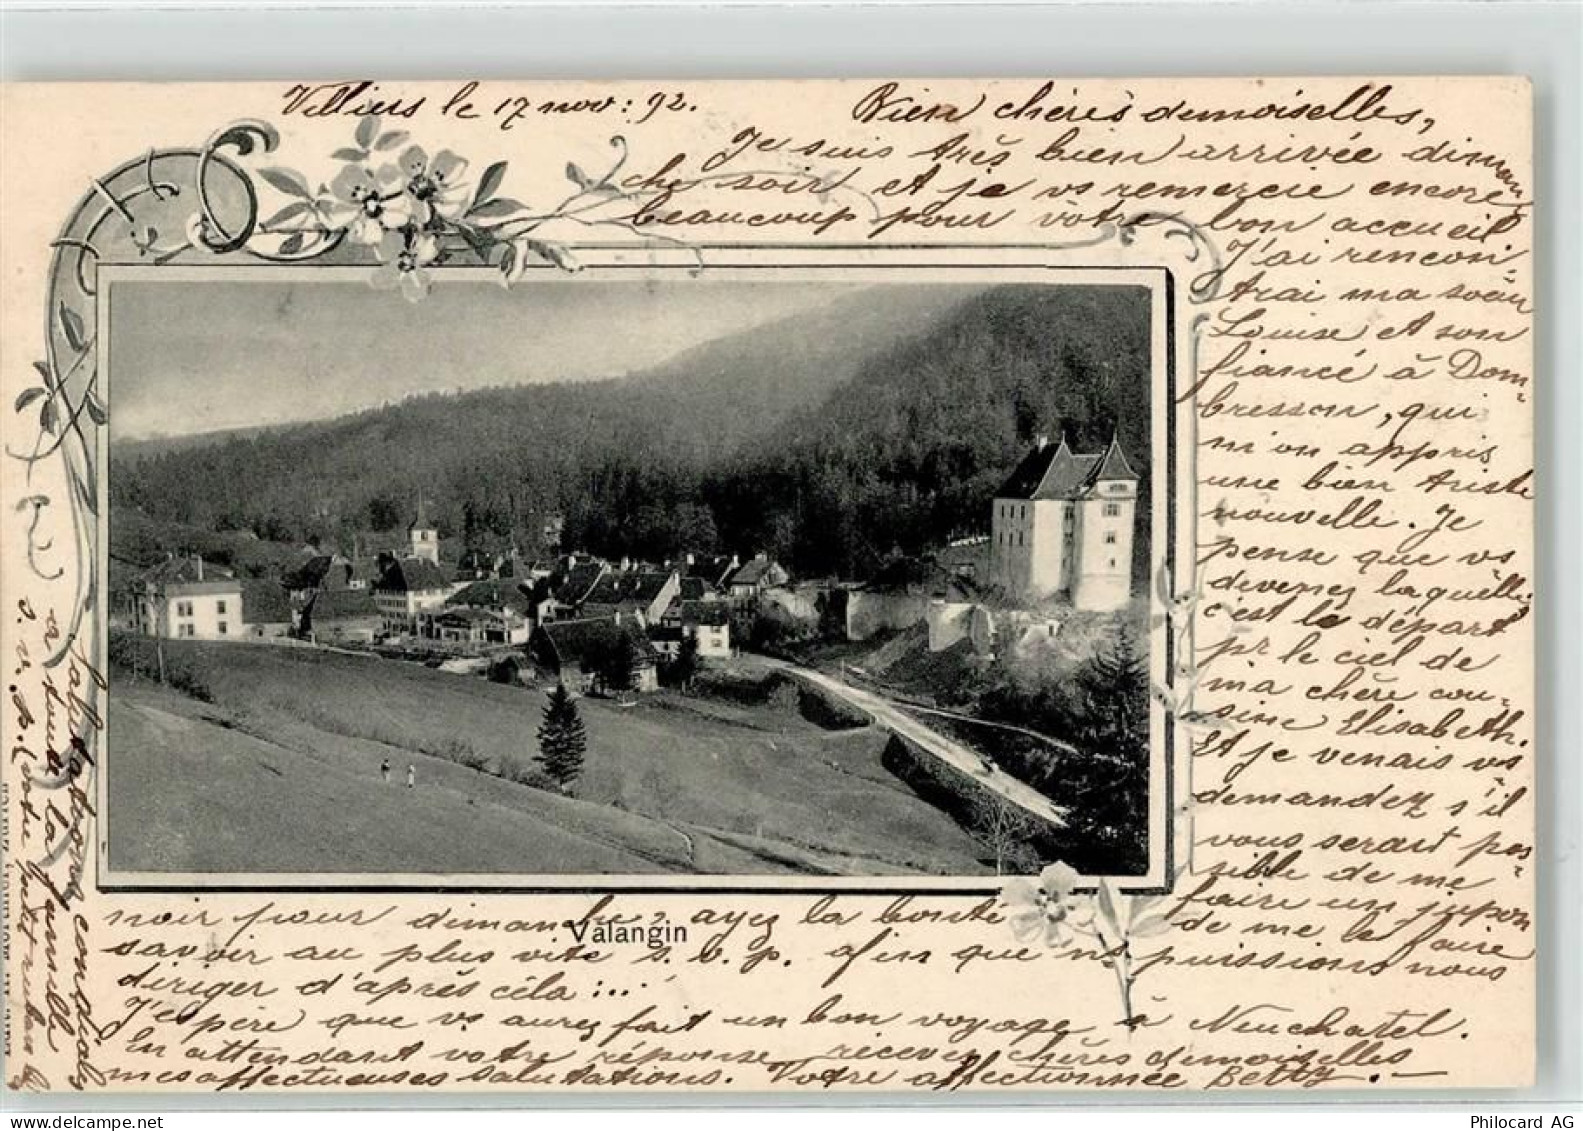 Villiers le 17 nov: 92.
Bien chères demoiselles,
Je suis très bien arrivée diman
che soir et je vs remercie encore
beaucoup pour votre bon accueil
J'ai rencon,
trai ma soeur
Louise et son
fiancé à Dom-
bresson, qui
m'on appris
une bien triste
nouvelle. Je
pense que vs
devenez laquèlle;
c'est le départ
pr le ciel de
ma chère cou-
sine Elisabeth.
Et je venais vs
demandez s'il
vous serait pos
sible de me
faire un jupon
noir pour dimanche, ayez la bonté de me le faire
savoir au plus vite s.v.p. afin que ns puissions nous
diriger d'après céla :...
J'espère que vs aurez fait un bon voyage à Neuchatel.
En attendant votre réponse recevez chères demoiselles
mes affectueuses salutations. Votre affectionnée Betty.—
Salutations cordiales
à toute la famille
s. v. p.
Valangin
Philocard AG